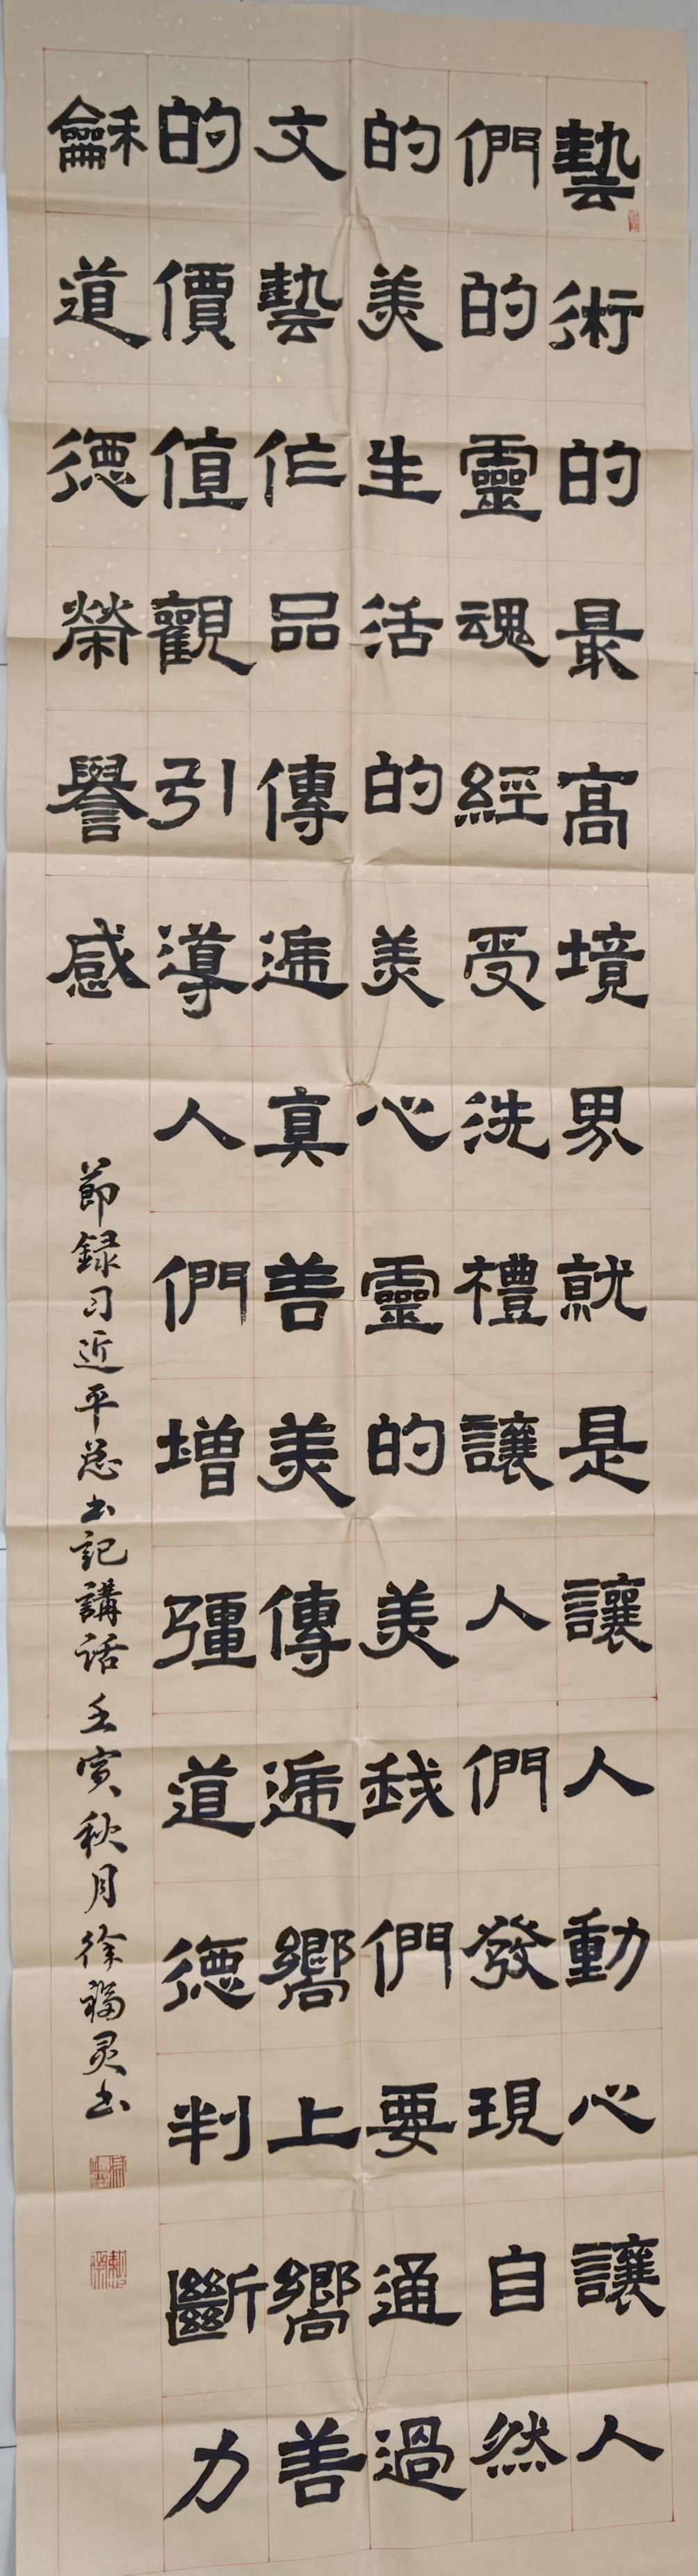 藝術的最高境界就是讓人動心讓人
們的靈魂經受洗禮讓人們發現自然
的美生活的美心靈的美我們要通過
文藝作品傳遞真善美傳遞嚮上嚮善
的價值觀引導人們增彊道德判斷力
龢道德榮譽感
節録习近平总书記講话壬寅秋月徐福灵书